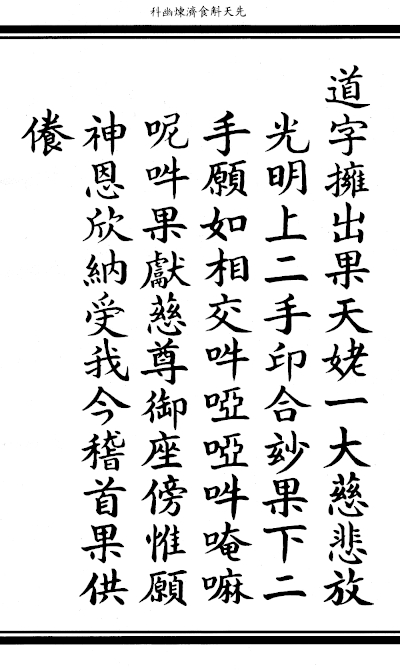 先天斛食濟煉幽科
道字擁出果天姥一大慈悲放
光明上二手印合玅果下二
手願如相交吽啞啞吽唵嘛
呢吽果獻慈尊御座傍惟願
神恩欣納受我今稽首果供